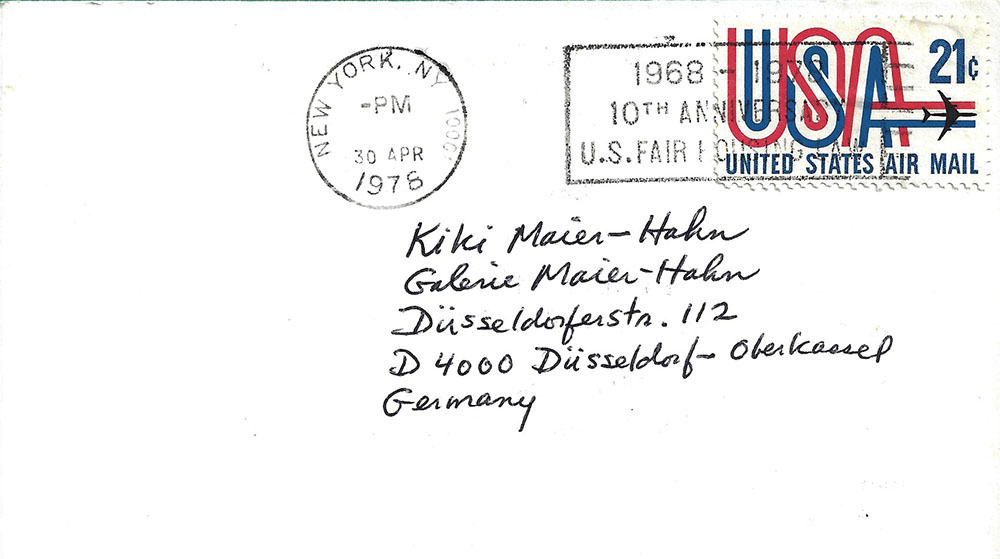 NEW YORK, NY 10001
-PM
30 APR
1978
1968 - 1978
10TH ANNIVERSARY
U.S. FAIR HOUSING LAW
USA 21¢
UNITED STATES AIR MAIL
Kiki Maier-Hahn
Galerie Maier-Hahn
Düsseldorferstr. 112
D 4000 Düsseldorf-Oberkassel
Germany